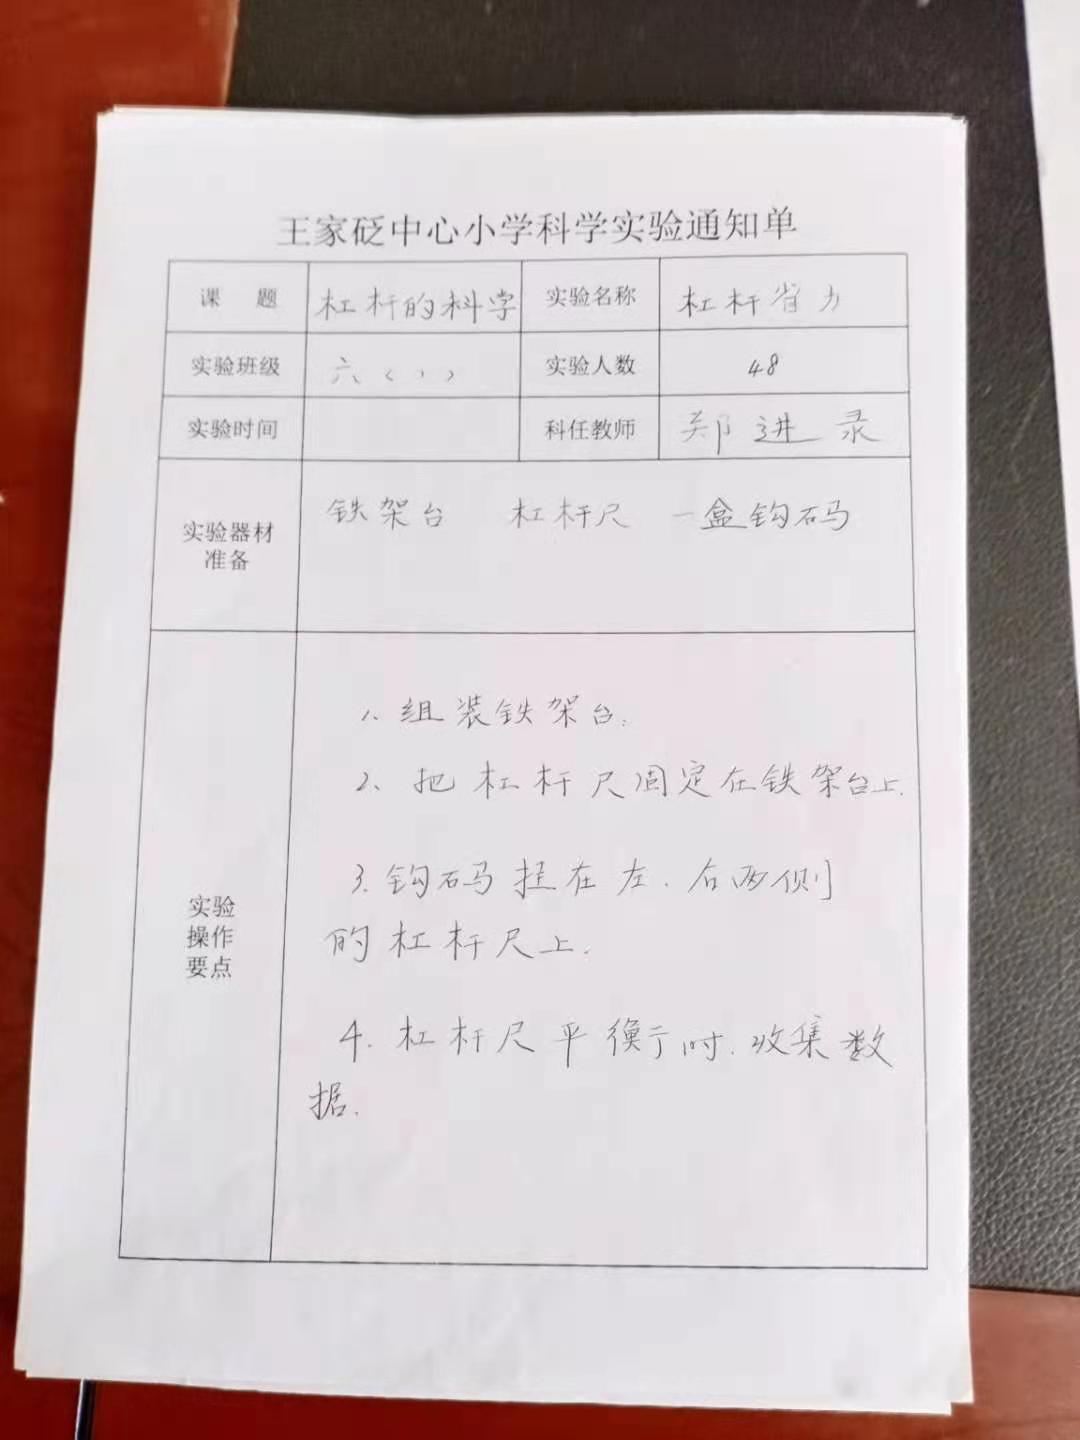 王家砭中心小学科学实验通知单
课 题 杠杆的科学 实验名称 杠杆省力
实验班级 六（1） 实验人数 48
实验时间 科任教师 郑进录
实验器材
准备
铁架台 杠杆尺 一盒钩码
实验
操作
要点
1、组装铁架台.
2、把杠杆尺固定在铁架台上.
3.钩码挂在左.右两侧
的杠杆尺上.
4.杠杆尺平衡时.收集数
据.